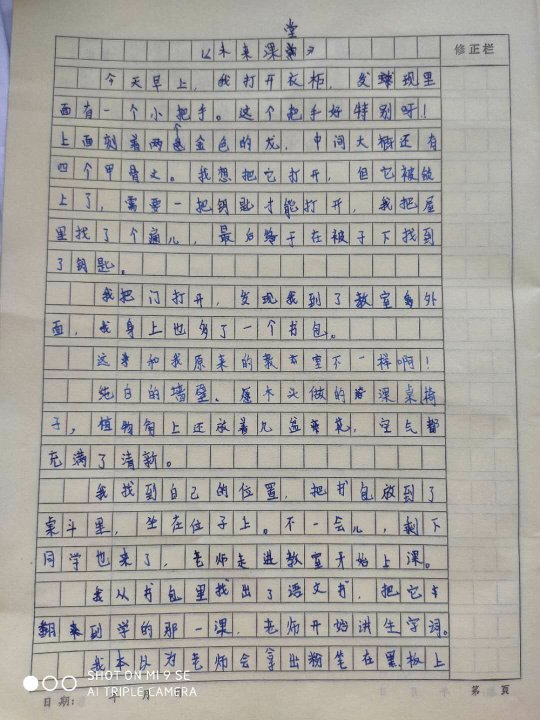 《未来课堂》
修正栏
今天早上，我打开衣柜，发现里
面有一个小把手。这个把手好特别呀！
上面刻着两色金色的龙，中间大概还有
四个甲骨文。我想把它打开，但它被锁
上了，需要一把钥匙才能打开，我把屋
里找了个遍儿，最后终于在被子下找到
了钥匙。
我把门打开，发现我到了教室外
面，我身上也多了一个书包。
这和我原来的教室不一样啊！
纯白的墙壁、原木头做的课桌椅
子，植物角上还放着几盆花，空气都
充满了清新。
我找到自己的位置，把书包放到了
桌斗里，坐在位子上。不一会儿，剩下
同学也来了，老师走进教室开始上课。
我从书包里找出了语文书，把它
翻到学的那一课，老师开始讲生字词。
我本以为老师会拿出粉笔在黑板上
SHOT ON MI 9 SE
AI TRIPLE CAMERA
日期： 年 月
第 页